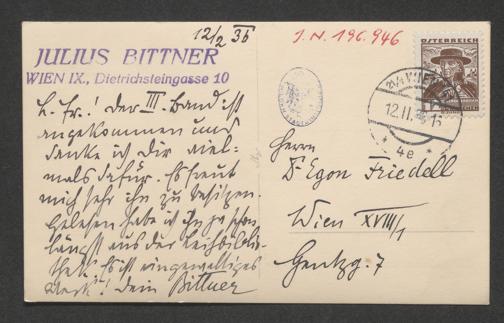 12/2 36
I. N. 196.946
JULIUS BITTNER
WIEN IX., Dietrichsteingasse 10
L. Fr.! Der III. Band ist
angekommen und
danke ich Dir viel-
mals dafür. Es freut
mich sehr ihn zu besitzen.
Gelesen habe ich ihn ja schon
längst aus der Leihbiblio-
thek. Es ist ein gewaltiges
Werk! Dein Bittner
ÖSTERREICH
WIEN
12.II.36
* 4e *
Herrn
Dr Egon Friedell
Wien XVIII/1
Gentzg. 7